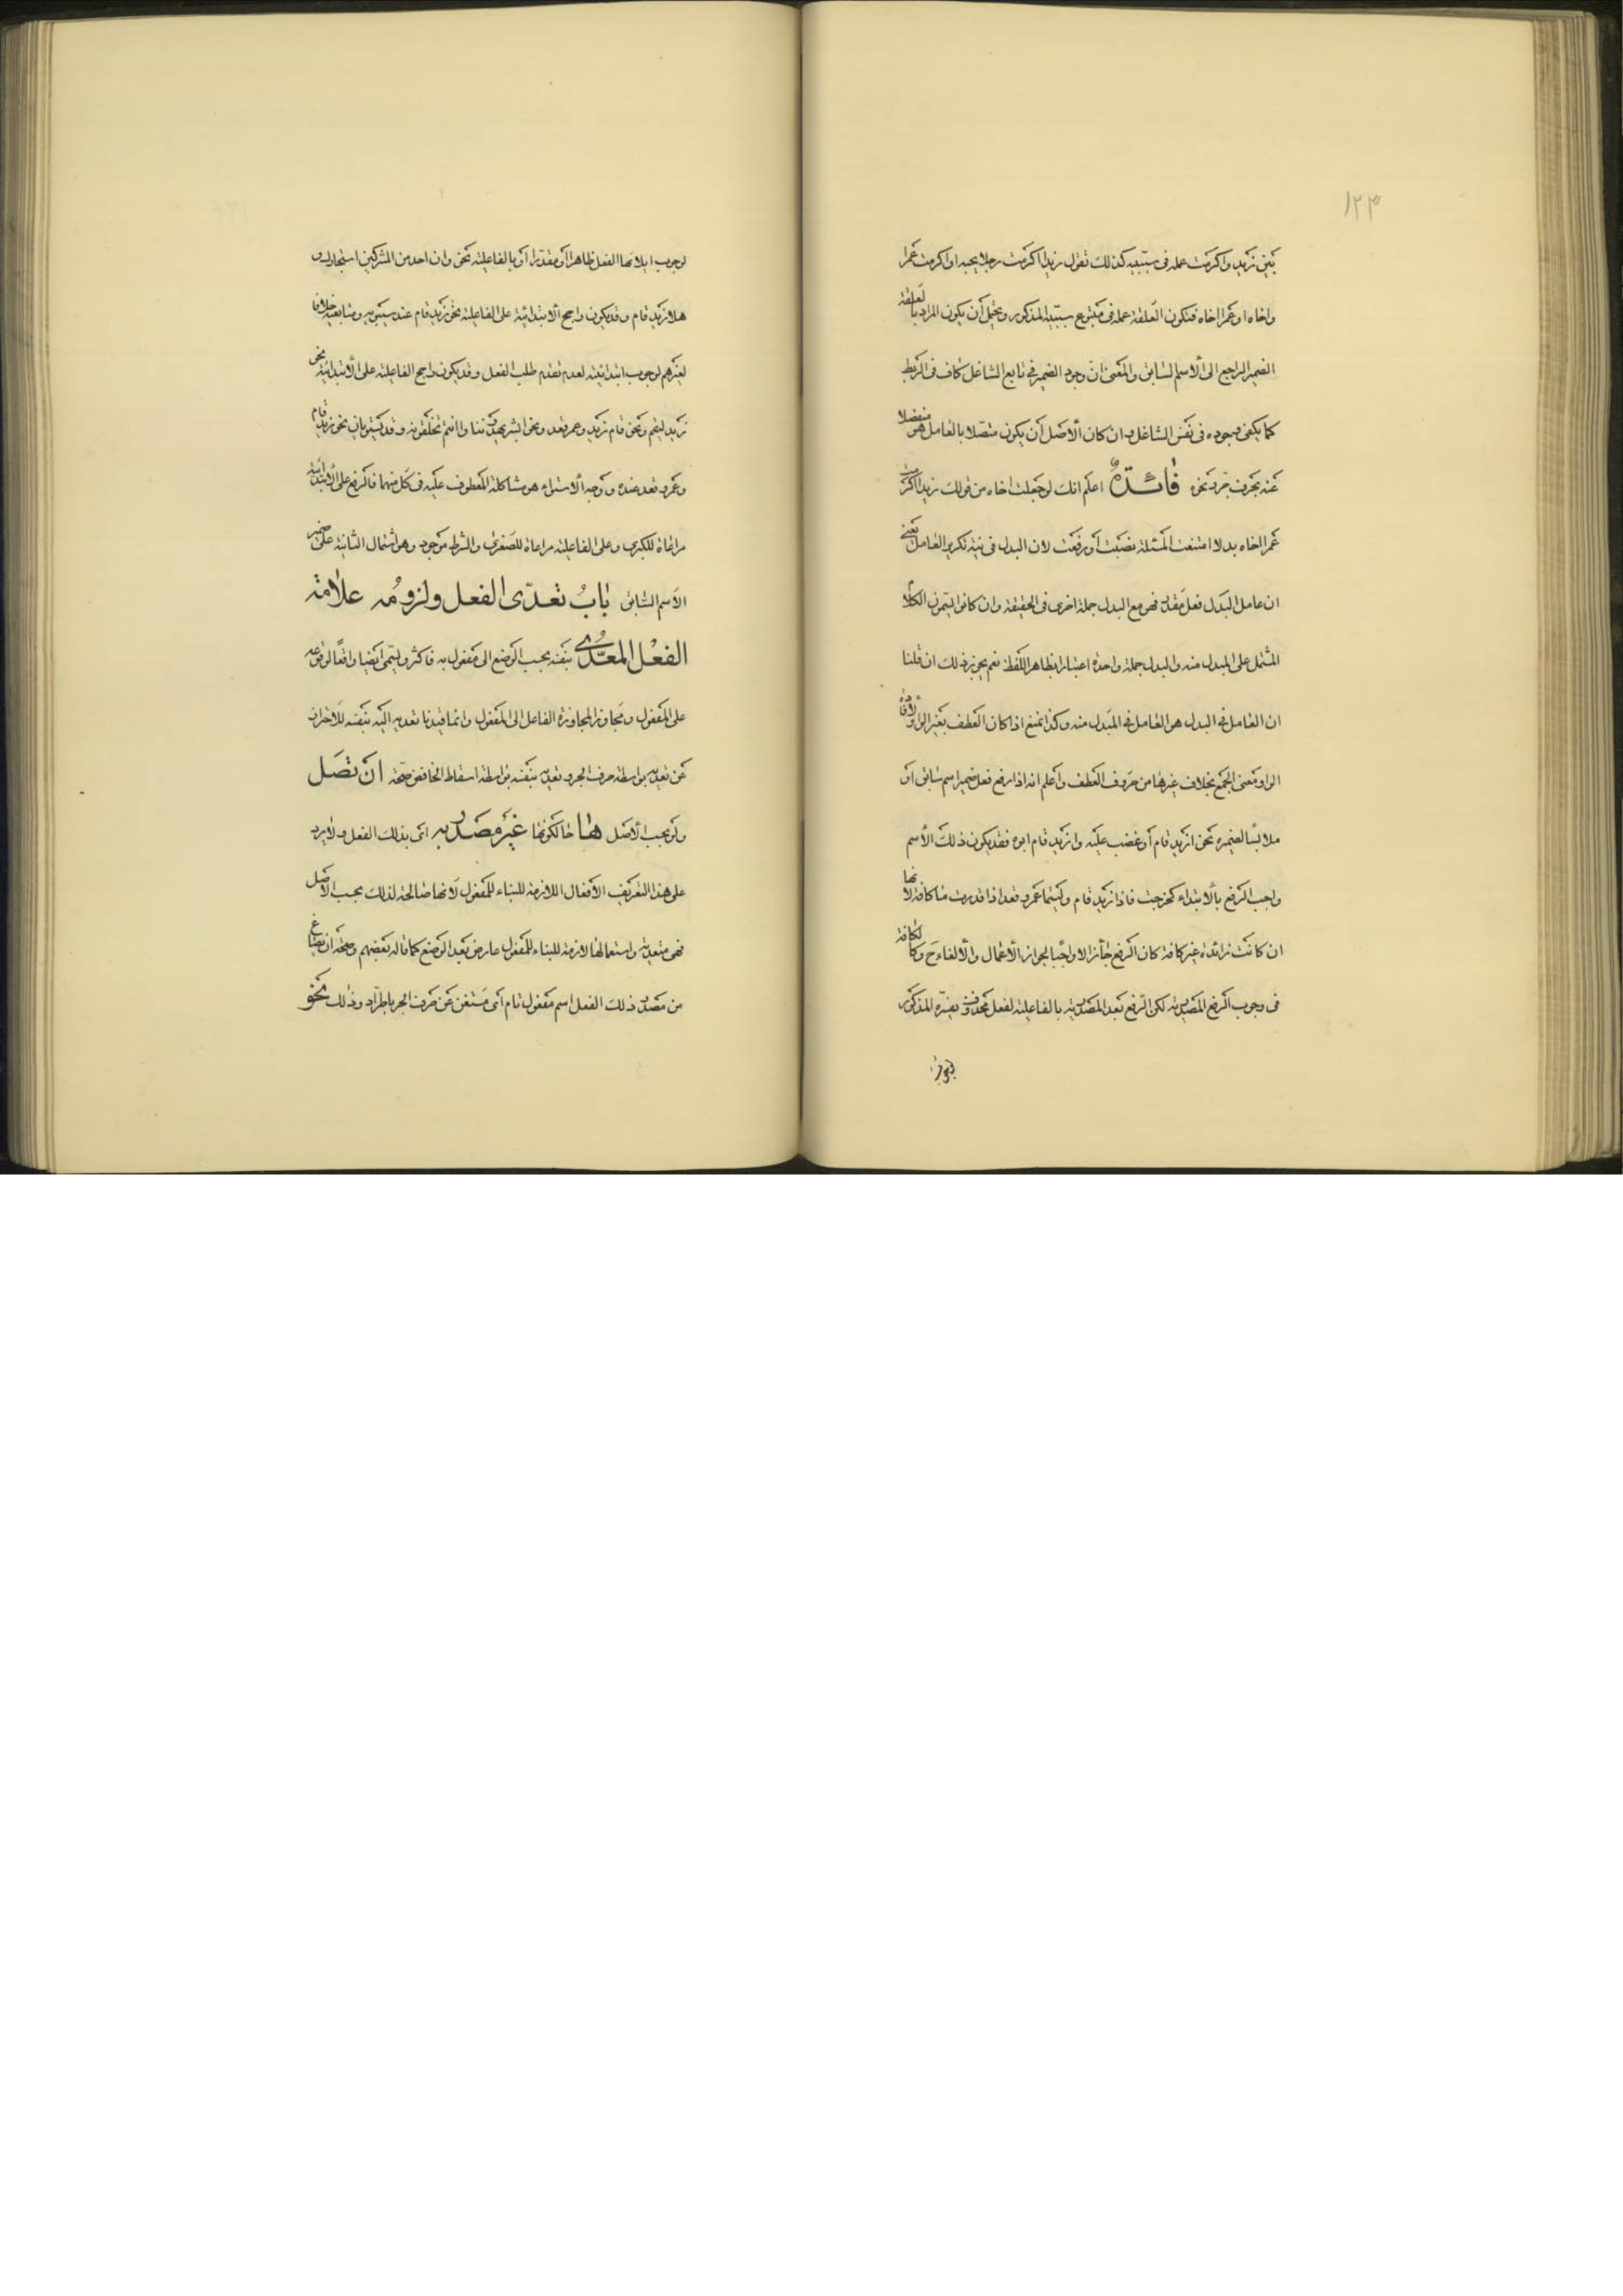 ١٢٣
بين زيد واكرمت عمله فى سببيه كذلك تقول زيدا اكرمت رجلا يحبه او اكرمت عمرا
واخاه او عمرا اخاه فتكون العلقة عمله فى متبوع سببيه المذكور ويحتمل أن يكون المراد بالعلقة
الضمير الراجع الى الأسم السابق والمعنى ان وجود الضمير فى تابع الشاغل كاف فى الربط
كما يكفى وجوده فى نفس الشاغل وان كان الأصل أن يكون متصلا بالعامل منفصلا
عنه بحرف جر ونحوه فائدة اعلم انك لو جعلت اخاه من قولك زيدا اكرمت
عمرا اخاه بدلا امتنعت المسئلة نصبت أو رفعت لان البدل فى نية تكرير العامل يعنى
ان عامل البدل فعل مقدر فهو مع البدل جملة اخرى فى الحقيقة وان كانوا يسمون الكلام
المشتمل على المبدل منه والبدل جملة واحدة اعتبارا بظاهر اللفظ نعم يجوز ذلك ان قلنا
ان العامل فى البدل هو العامل فى المبدل منه وكذا تمتنع اذا كان العطف بغير الواو لأفادة
الواو معنى الجمع بخلاف غيرها من حروف العطف واعلم انه اذا رفع فعل ضمير اسم سابق او
ملابسا لضميره نحو ازيد قام أو غضب عليه وازيد قام ابوه فقد يكون ذلك الأسم
واجب الرفع بالأبتداء كخرجت فاذا زيد قام وليتما عمرو قعد اذا قدرت ما كافة لأنها
ان كانت زائدة غير كافة كان الرفع جائزا لا واجبا لجواز الأعمال والألغاء ح وكالكافة
فى وجوب الرفع المصدرية لكن الرفع بعد المصدرية بالفاعلية لفعل محذوف يفسره المذكور
لوجوب ايلائها الفعل ظاهرا أو مقدرا أو بالفاعلية نحو وان احد من المشركين استجارك و
هلا زيد قام وقد يكون راجح الأبتدائية على الفاعلية نحو زيد قام عند سيبويه ومتابعيه خلافا
لغيرهم لوجوب ابتدائيته لعدم تقدم طلب الفعل وقد يكون راجح الفاعلية على الأبتدائية نحو
زيد ليقم ونحو قام زيد وعمرو قعد ونحو ابشر يهدوننا واانتم تخلقونه وقد يستويان نحو زيد قام
وعمرو قعد عنده ووجه الأستواء هو مشاكلة المعطوف عليه فى كل منهما فالرفع على الأبتدائية
مراعاة للكبرى وعلى الفاعلية مراعاة للصغرى والشرط موجود وهو اشتمال الثانية على ضمير
الأسم السابق باب تعدى الفعل ولزومه علامة
الفعل المعدى بنفسه بحسب الوضع الى مفعول به فاكثر ويسمى ايضا واقعا لوقوعه
على المفعول ومجاوزا لمجاوزة الفاعل الى المفعول وانما قيدنا تعديه اليه بنفسه للأحتراز
عن تعديه بواسطة حرف الجر وتعديه بنفسه بواسطة اسقاط الخافض صحة ان تصل
ولو بحسب الأصل ها حالكونها غير مصدر به اى بذلك الفعل ولا يرد
على هذا التعريف الأفعال اللازمة للبناء للمفعول لأنها صالحة لذلك بحسب الأصل
فهى متعدية واستعمالها لازمة للبناء للمفعول عارض بعد الوضع كما قاله بعضهم وصحة أن يصاغ
من مصدر ذلك الفعل اسم مفعول تام أى مستغن عن حرف الجر باطراد وذلك نحو